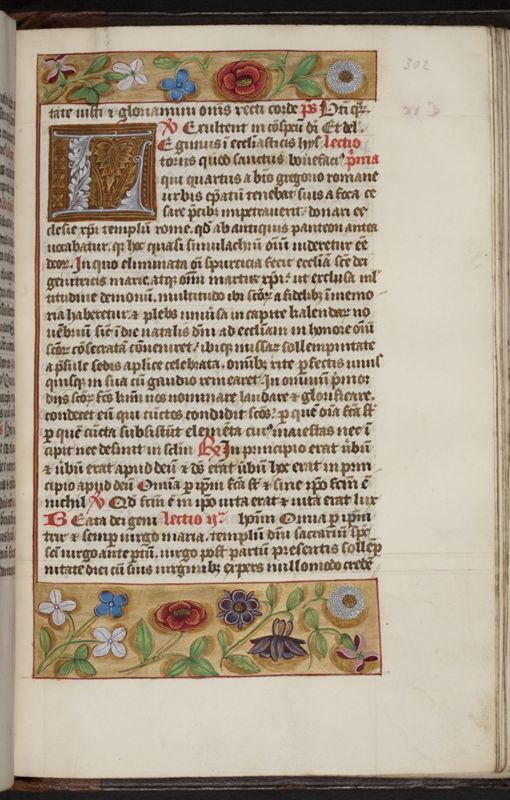 302
tate iusti & gloriamini om̄s recti corde p̄s D̄ni est.
V Exultent in cōspcū dī Et del.
Egimus ī ecclīasticis hys lectio
toriis quod sanctus bonefaci9 p̄ma
qui quartus a bt̄o gregorio romane
urbis ep̄atū tenebat suis a foca ce
sare p̄cibz impetraverit donari ec
clesie xp̄i templū rome. qd̄ ab antiquis panteon antea
vocabatur. qz hoc quasi simulachrū om̄iū videretur eē
deor̄. In quo eliminata oī spurcicia fecit ecclīā scē dei
genitricis marie. atqz om̄ martirū xp̄i. ut exclusa ml̄
titudine demonū, multitudo ibi scōr a fidelibz ī memo
ria haberetur. & plebs univsa in capite kalendar̄ no
vēbriū sic̄ ī die natalis dn̄i ad ecclīam in honore om̄iū
scōr cōsecratā cōveniret. ibiqz missar sollempnitate
a p̄sule sedis ap̄lice celebrata. om̄ibz rite p̄fectis unus
quisqz in sua cū gaudio remearet. In omniū p̄mor
diis scōr fc̄s
condecet eū qui cūctos condidit scōs. p quē oīa fc̄a st̄
p quē cūcta subsistūt elemēta cui9 maiestas nec ī
cipit nec desinit in sc̄lm R In principio erat v̄bū
& v̄bū erat apud deū & ds̄ erat v̄bū hoc erat in prin
cipio apud deū Omnia p ipm̄ fc̄a st̄ & sine ip̄o fc̄m ē
nichil V Qd̄ fc̄m ē in ip̄o vita erat & vita erat lux
BEata dei geni lectio ii. hom̄ Omnia p ipm̄
trix & semp virgo maria. templū dn̄i sacrariū sp̄c
sc̄i virgo ante p̄tū, virgo post partū presentis sollēp
nitate diei cū suis virginibz expers nullomodo credē